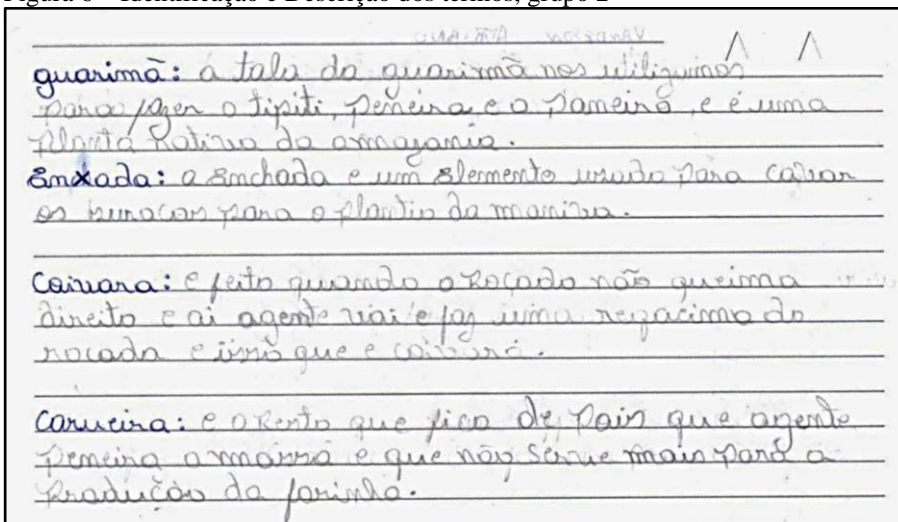 Figura 6 – Identificação e Descrição dos termos, grupo 2
guarimã: a tala da guarimã nos utilizimos
para fazer o tipiti, peneira e o paneiro, e é uma
planta nativa da amazania.
Enxada: a Emchada e um Elemento usado para cavar
os buracos para o plantio da maniva.
Coivara: e feito quando o Roçado não queima
direito e ai agente vai e faz uma
rocada e isso que e coivara.
Carueira: e o Resto que fica de, Pois que agente
Peneira a massa e que não Serve mais para a
Produção da farinha.